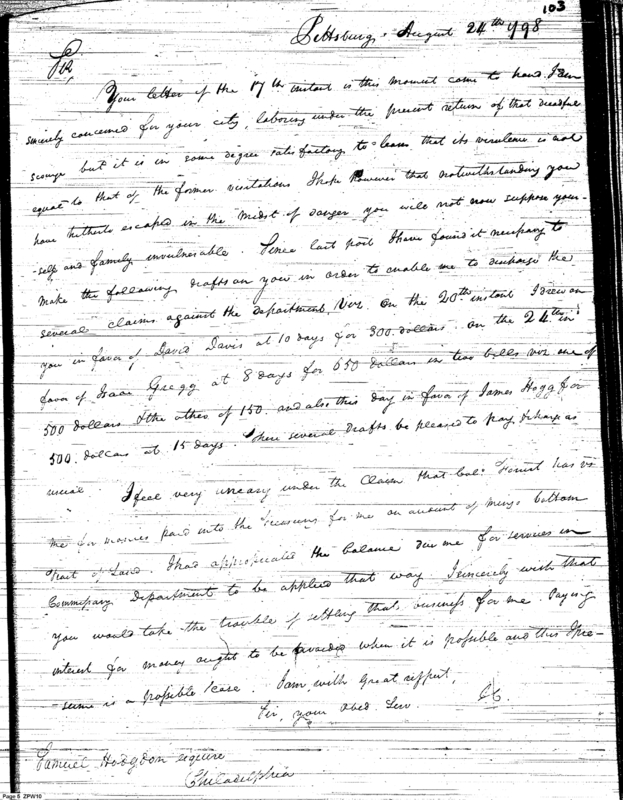 103
Pittsburg August 24th 1798
Sir,
Your letter of the 17th instant is this moment come to hand. I am
sincerely concerned for your city, laboring under the present return of that dreadful
scourge but it is in some degree satisfactory to learn that its virulence is not
equal to that of the former visitations I hope however that notwithstanding you
have hitherto escaped in the midst of danger you will not now suppose your-
-self and family invulnerable. Since last post I have found it necessary to
make the following drafts on you in order to enable me to discharge the
several claims against the department, viz. on the 20th instant I drew on
you in favor of David Davis at 10 days for 300 dollars. on the 24th in
favor of Isaac Gregg at 8 days for 650 dollars in two bills viz one of
500 dollars & the other of 150. and also this day in favor of James Hogg for
500. dollars at 15 days. These several drafts be pleased to pay & charge as
usual. I feel very uneasy under the Claim that Col. has vs
me for monies paid into the Treasury for me on amount of bottom
tract of Land. I had appropriated the balance due me for services in
Commissary Department to be applied that way I sincerely wish that
you would take the trouble of settling that business for me. Paying
interest for money ought to be avoided when it is possible and this I pre-
-sume is a possible case. I am with great respect,
Sir, your Obed. Serv.
Samuel Hodgdon esquire
Philadelphia
Page 6 ZPW10